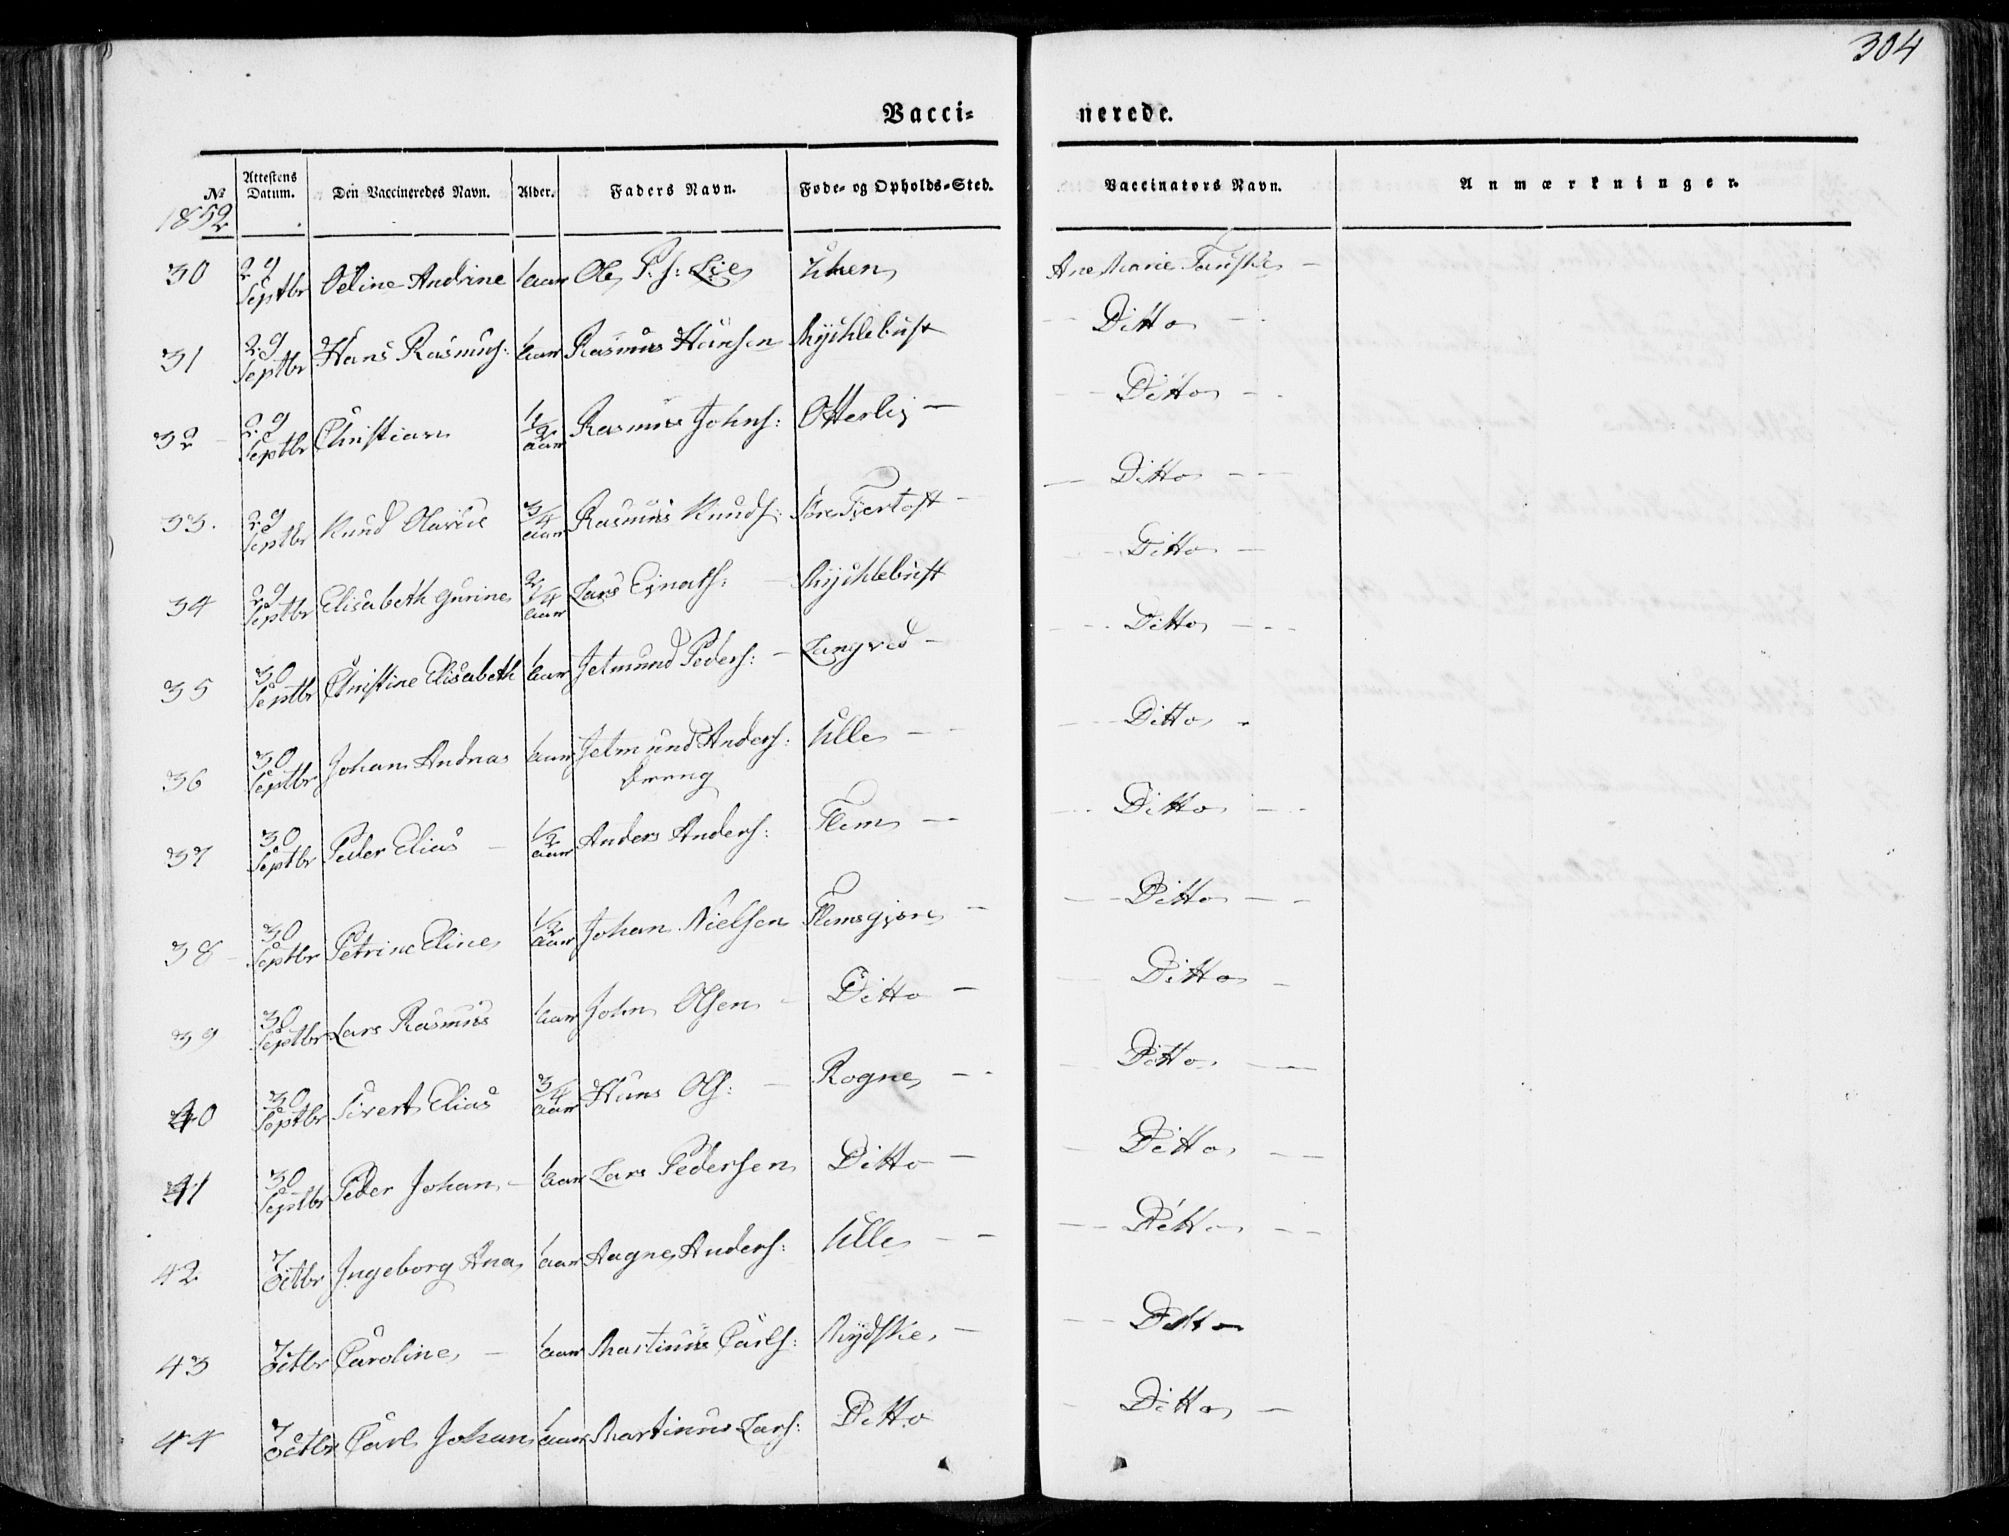 304
Vacci-nerede.
№ Attestens Datum. Den Vaccineredes Navn. Alder. Faders Navn. Føde- og Opholds-Sted. Vaccinators Navn. Anmærkninger.
1852
30 29 Septbr Oeline Andrine 1 aar Ole P.s: Lie Uhren Ane Marie
31 29 Septbr Hans Rasmus: 1 aar Rasmus Hansen Mychlebust Ditto
32 29 Septbr Christian 1/2 aar Rasmus Johns: Otterlej Ditto
33. 29 Septbr Knud Olarius 3/4 aar Rasmus Knuds: Søre Fjertoft Ditto
34 29 Septbr Elisabeth Gurine 2/4 aar Lars Ejnals: Mychlebust Ditto
35 30 Septbr Christine Elisabeth 1 aar Jetmund Peders: Longved Ditto
36 30 Septbr Johan Andreas 1 aar Jetmund Anders: dreng Ulle Ditto
37 30 Septbr Peder Elias 1/2 aar Anders Anders: Flem Ditto
38 30 Septbr Petrine Eline 1/2 aar Johan Nielsen Flemsgjøre Ditto
39 30 Septbr Lars Rasmus 1 aar John Olsen Ditto Ditto
40 30 Septbr Sivert Elias 3/4 aar Hans Ols: Rogne Ditto
41 30 Septbr Peder Johan 1 aar Lars Pedersen Ditto Ditto
42 7 Octbr Ingeborg Ana 1 aar Aagne Anders: Ulle Ditto
43 7 Octbr Caroline 1 aar Martinus Carls: Rydske Ditto
44 7 Octbr Carl Johan 1 aar Martinus Lars: Ditto Ditto